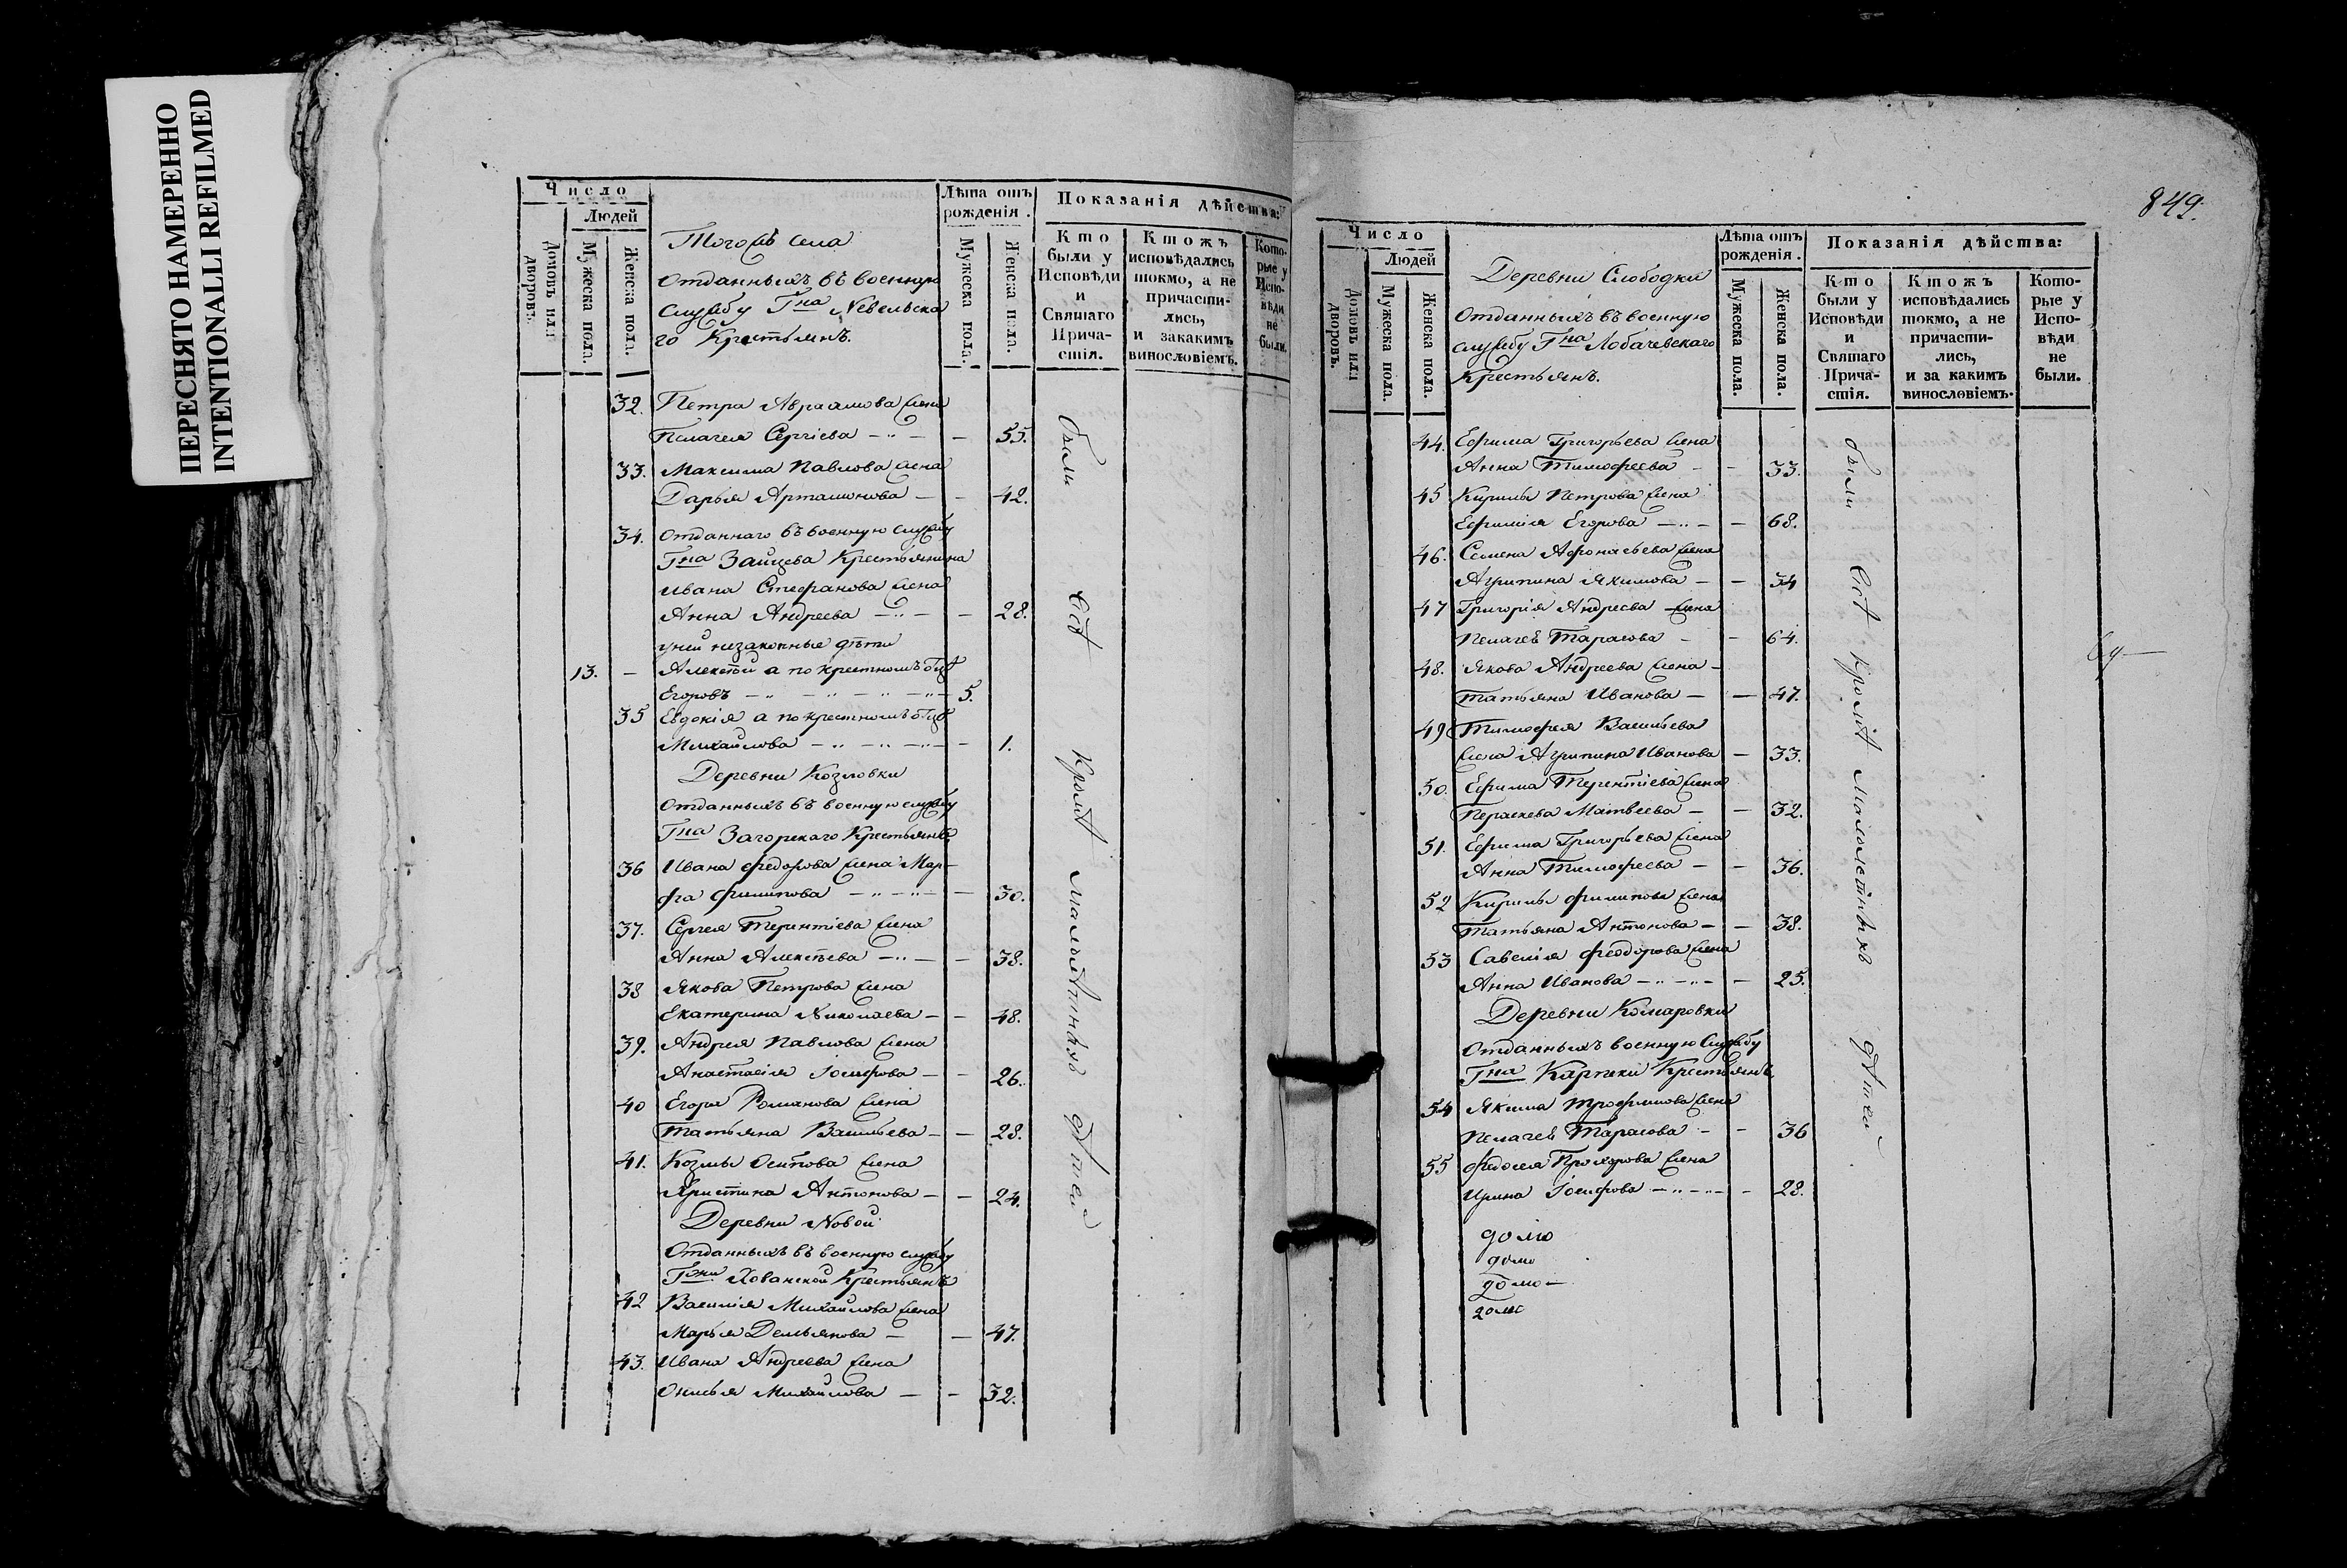 ПЕРЕСНЯТО НАМЕРЕННО
INTENTIONALLI REFILMED
Число
Людей
Домовъ или дворовъ.
Мужеска пола.
Женска пола.
Тогожъ села
отданныхъ въ военную
службу Гна Невельска
го Крестьянъ.
Лѣта отъ рожденія.
Мужеска пола.
Женска пола.
Показанія дѣйства:
Кто были у Исповѣди и Святаго Прича-стія.
Ктожъ исповѣдались токмо, а не причасти-лись, и закакимъ винословіемъ.
Кото-рые у Испо-вѣди не были.
32. Петра Авраамова жена
Пелагея Сергіева - - 55.
33. Максима Павлова жена
Дарья Артамонова - - 42.
34. отданнаго въ военную службу
Гна Зайцева Крестьянина
Ивана Стефанова жена
Анна Андреева - - 28.
у ней незаконные дѣти
13. - Алексѣй а по крестномъ отцѣ
Егоровъ - - - 5.
35 Евдокія а по крестномъ отцѣ
Михайлова - - - 1.
Деревни Козловки
отданныхъ въ военную службу
Гна Загорскаго Крестьянъ
36 Ивана Федорова жена Мар-
фа Филипова - - 30.
37. Сергея Терентіева жена
Анна Алексѣева - - 38.
38 Якова Петрова жена
Екатерина Николаева - - 48.
39. Андрея Павлова жена
Анастасія Іосифова - - 26.
40 Егора Романова жена
Татьяна Васильева - - 28.
41. Козмы Осипова жена
Христина Антонова - - 24.
Деревни Новой
Отданныхъ въ военную службу
Гжи Хованской Крестьянъ
42 Василія Михайлова жена
Марья Демьянова - - 47.
43. Ивана Андреева жена
Онисья Михайлова - - 32.
были всѣ кромѣ малолѣтныхъ дѣтей
849.
Число
Людей
Домовъ или дворовъ.
Мужеска пола.
Женска пола.
Деревни Слободки
Отданныхъ въ военную
службу Гна Лобачевскаго
Крестьянъ.
Лѣта отъ рожденія.
Мужеска пола.
Женска пола.
Показанія дѣйства:
Кто были у Исповѣди и Святаго Прича-стія.
Ктожъ исповѣдались токмо, а не причасти-лись, и за какимъ винословіемъ.
Кото-рые у Испо-вѣди не были.
44. Ефима Григорьева жена
Анна Тимофеева - - 33.
45 Кирилы Петрова жена
Ефимія Егорова - - 68.
46. Семена Афонасьева жена
Агрипина Якимова - - 34
47 Григорія Андреева жена
Пелагея Тарасова - - 64.
48. Якова Андреева жена -
Татьяна Иванова - - 47.
49 Тимофея Васильева
жена Агрипина Иванова - 33.
50. Ефима Терентіева жена
Параскева Матвеева - - 32.
51. Ефима Григорьева жена
Анна Тимофеева - - 36.
52 Кирилы Филипова жена
Татьяна Антонова - - 38.
53 Савелія Феодорова жена
Анна Иванова - - - 25.
Деревни Комаровки
Отданныхъ военную службу
Гна Карпеки Крестьянъ
54 Якима Трофимова жена
Пелагея Тарасова - - 36
55 Федосея Прохорова жена
Ирина Іосифова - - - 28.
были всѣ кромѣ малолетныхъ дѣтей